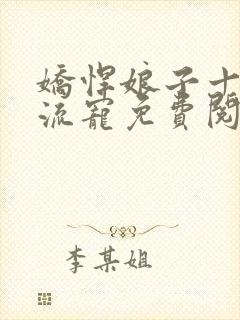 嬌悍娘子十
流寵免費閱
李某姐